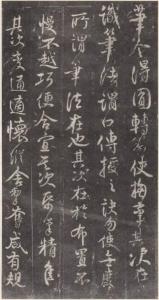 筆令得圓轉勿使拘攣其次在
識筆法謂口傳授之訣勿使無度
所謂筆法在也其次在於布置不
慢不越巧使合宜其次紙筆精佳
其次變通適懷縱舍掣奪咸有規